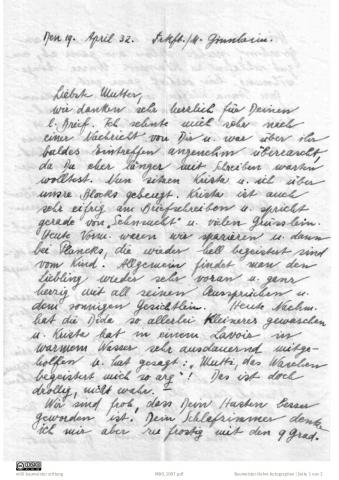 Den 19. April 32. Frkft./M. Ginnheim.
Liebste Mutter,
wir danken sehr herzlich für Deinen
l. Brief. Ich sehnte mich sehr nach
einer Nachricht von Dir u. war über ihr
baldes Eintreffen angenehm überrascht,
da Du eher länger mit Schreiben warten
wolltest. Nun sitzen Krista u. ich über
unsre Blocks gebeugt. Krista ist auch
sehr eifrig am Briefschreiben u. spricht
gerade von „Sehnsucht" u. vielen Grüsslein.
Heute Vorm. waren wir spazieren u. dann
bei Plancks, die wieder hell begeistert sind
vom Kind. Allgemein findet man den
Liebling wieder sehr voran u. ganz
herzig mit all seinen Aussprüchen u.
dem sonnigen Gesichtlein. Heute Nachm.
hat die Dide so allerlei Kleineres gewaschen
u. Krista hat in einem Lavoir in
warmem Wasser sehr ausdauernd mitge-
holfen u. hat gesagt: „Mutti, das Waschen
begeistert mich so arg"! Das ist doch
drollig, nicht wahr.
Wir sind froh, dass Dein Husten besser
geworden ist. Dein Schlafzimmer denke
ich mir aber zu frostig mit den 9 Grad.
willi baumeister stiftung
Baumeister-Briefe Autographen | Seite 1 von 2